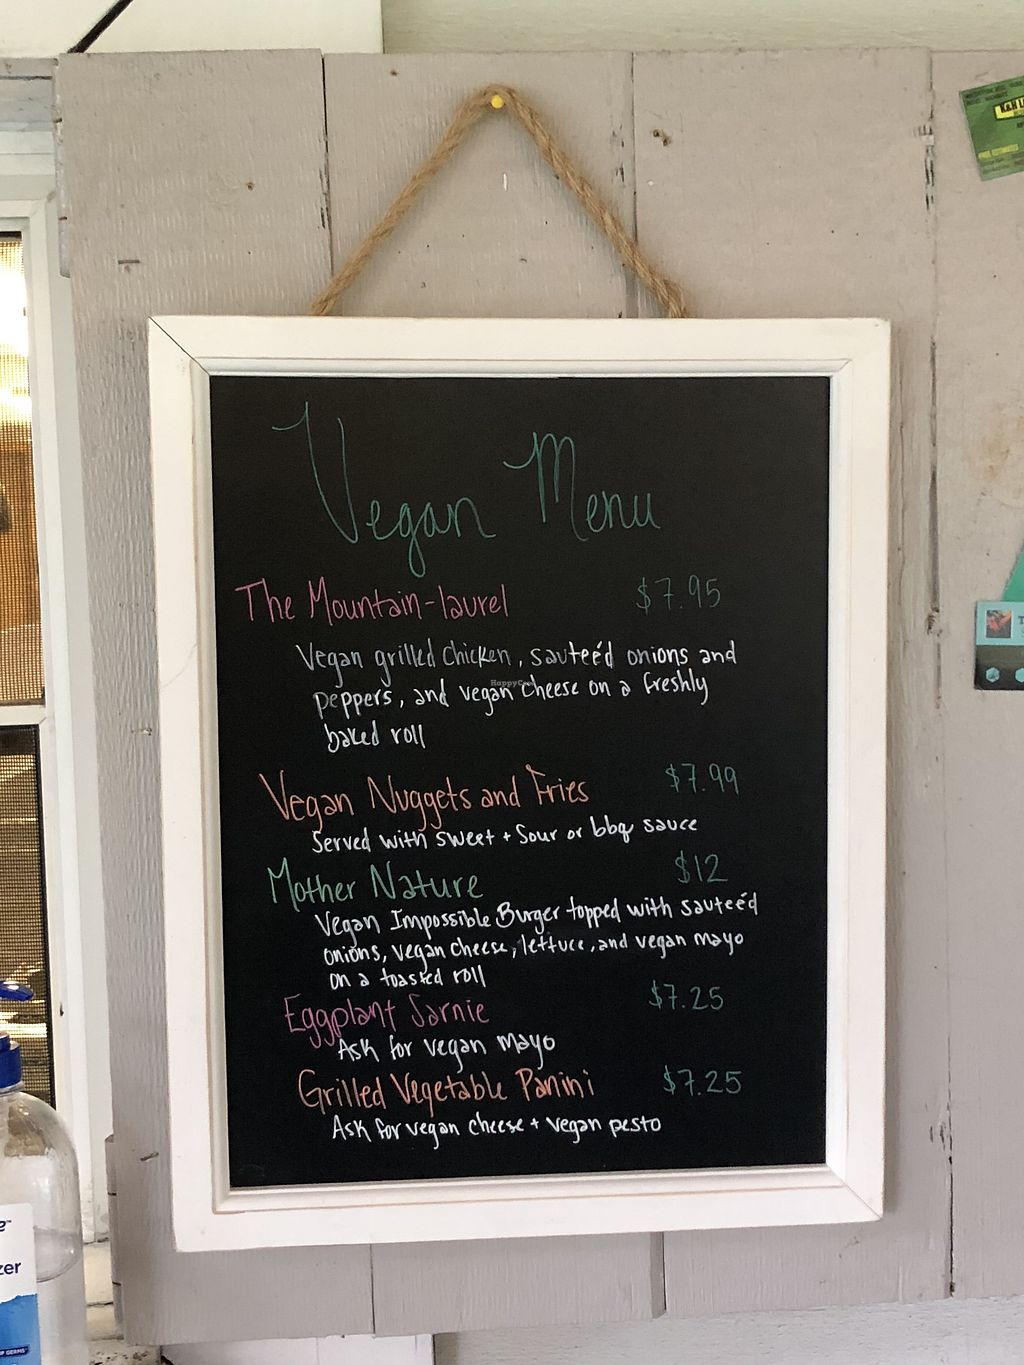 Vegan Menu
The Mountain-laurel $7.95
Vegan grilled Chicken, sauteéd onions and
peppers, and vegan cheese on a freshly
baked roll
Vegan Nuggets and Fries $7.99
Served with sweet + sour or bbq sauce
Mother Nature $12
Vegan Impossible Burger topped with sauteéd
onions, vegan cheese, lettuce, and vegan mayo
on a toasted roll
Eggplant Sarnie $7.25
Ask for vegan mayo
Grilled Vegetable Panini $7.25
Ask for vegan cheese + vegan pesto